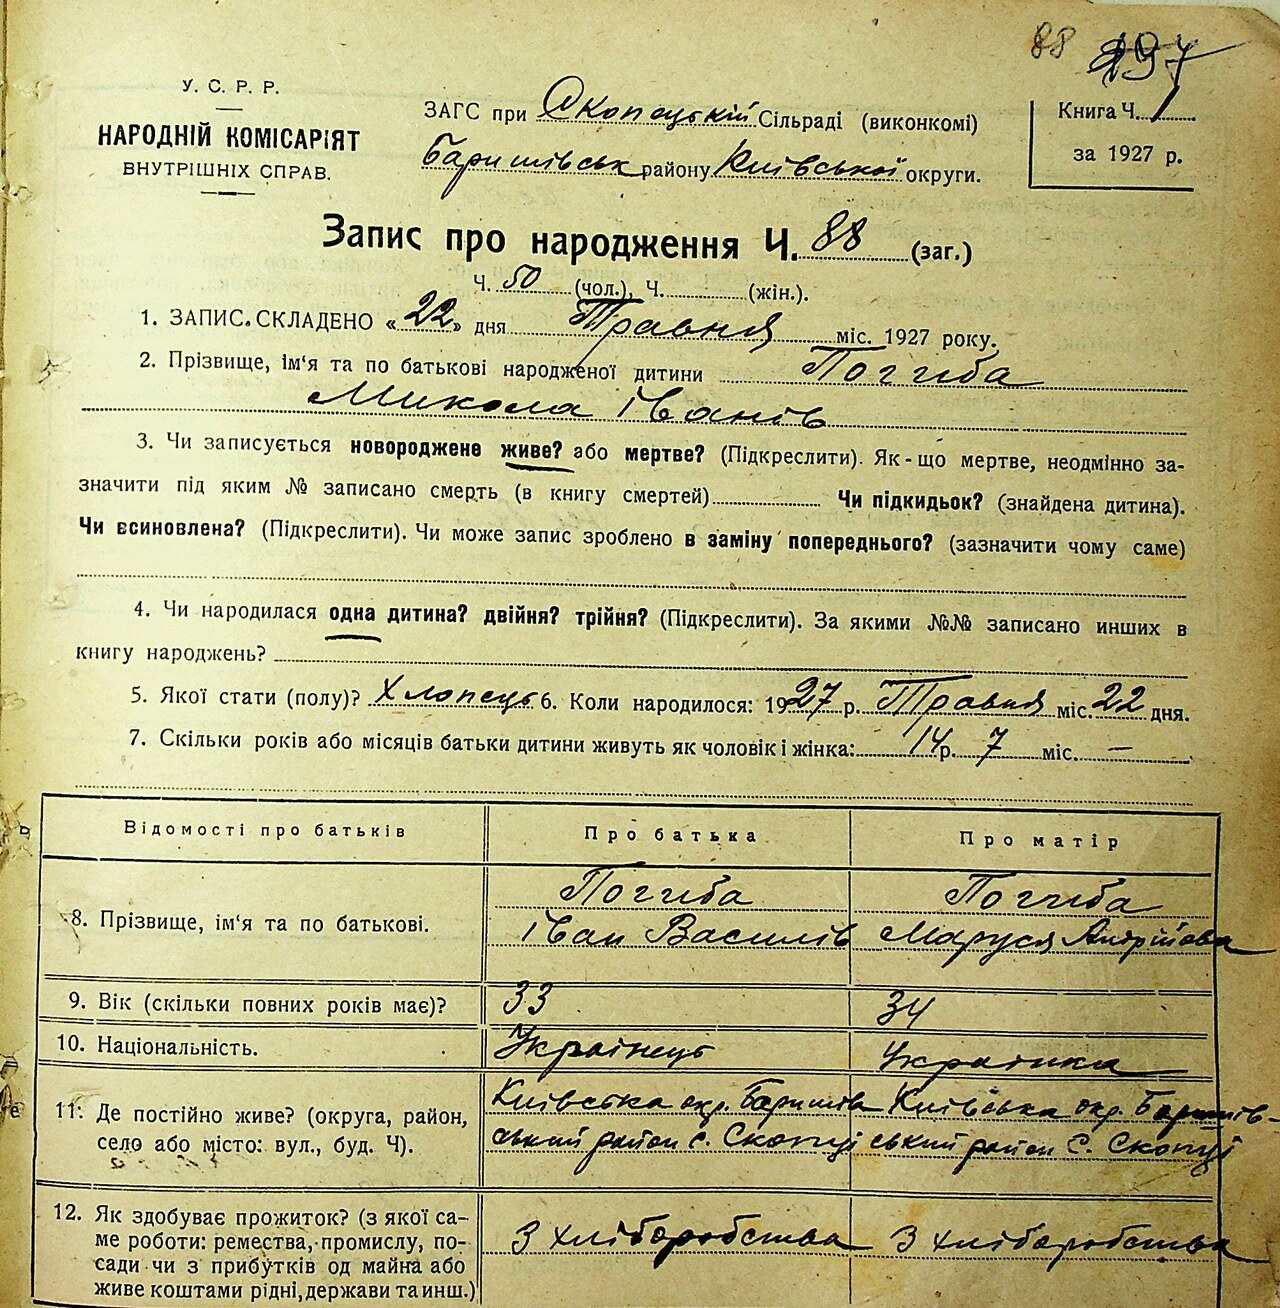 88 197
У. С. Р. Р.
НАРОДНІЙ КОМІСАРІЯТ
ВНУТРІШНІХ СПРАВ.
ЗАГС при Скопецькій Сільраді (виконкомі)
Баришівськ району Київської округи.
Книга Ч. 1
за 1927 р.
Запис про народження Ч. 88 (заг.)
Ч. 50 (чол.), Ч. (жін.).
1. ЗАПИС. СКЛАДЕНО «22» дня Травня міс. 1927 року.
2. Прізвище, ім‘я та по батькові народженої дитини Погиба
Микола Іванів
3. Чи записується новороджене живе? або мертве? (Підкреслити). Як-що мертве, неодмінно за-
значити під яким № записано смерть (в книгу смертей) Чи підкидьок? (знайдена дитина).
Чи всиновлена? (Підкреслити). Чи може запис зроблено в заміну попереднього? (зазначити чому саме)
4. Чи народилася одна дитина? двійня? трійня? (Підкреслити). За якими №№ записано инших в
книгу народжень?
5. Якої стати (полу)? Хлопець 6. Коли народилося: 1927 р. Травня міс. 22 дня.
7. Скільки років або місяців батьки дитини живуть як чоловік і жінка: 14 р. 7 міс. —
Відомості про батьків Про батька Про матір
8. Прізвище, ім‘я та по батькові. Погиба Іван Василів Погиба Маруся Андрійова
9. Вік (скільки повних років має)? 33 34
10. Національність. Українець Українка
11. Де постійно живе? (округа, район,
село або місто: вул., буд. Ч).
Київська окр. Баришів
ський район с. Скопці
Київська окр. Баришів-
ський район с. Скопці
12. Як здобуває прожиток? (з якої са-
ме роботи: ремества, промислу, по-
сади чи з прибутків од майна або
живе коштами рідні, держави та инш.)
З хліборобства З хліборобства